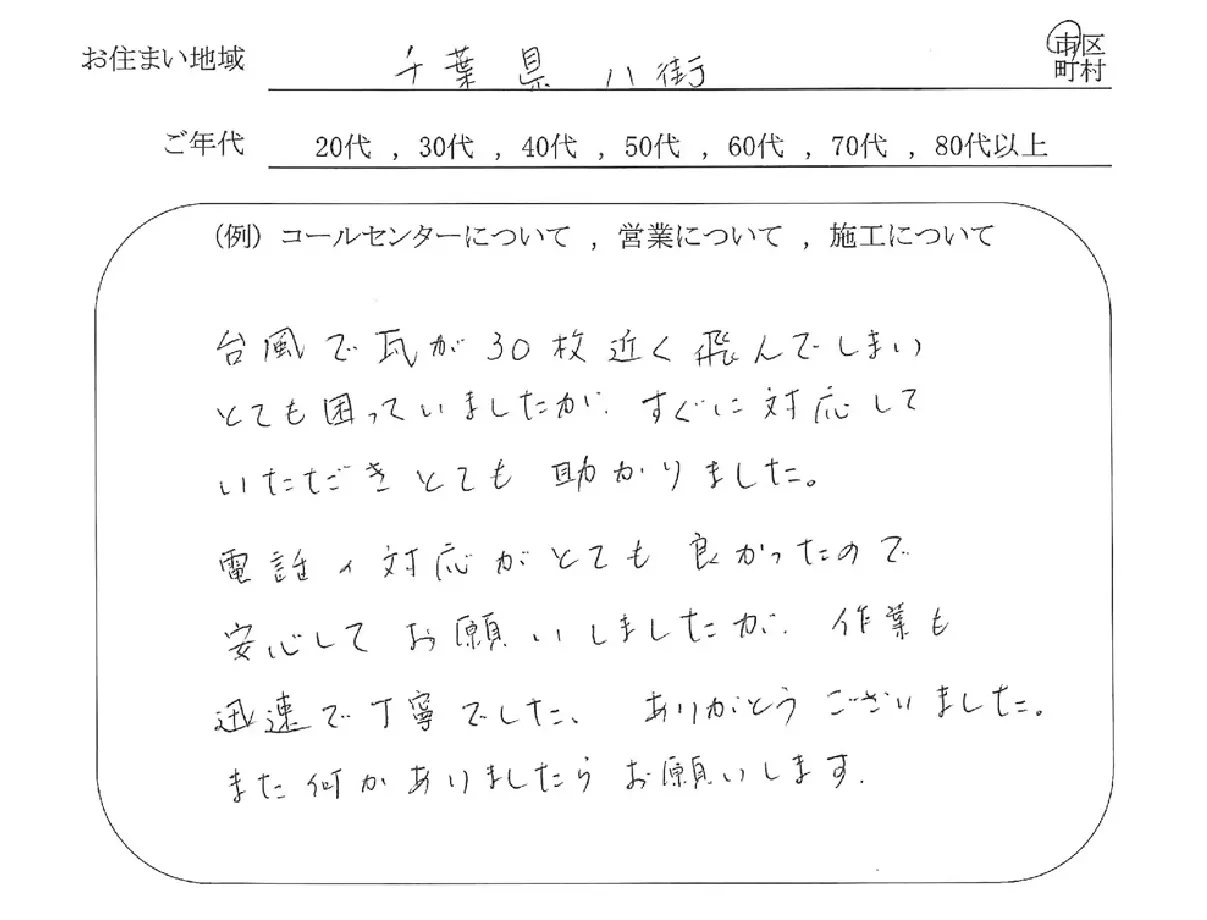 お住まい地域 千葉県 八街 市区
町村
ご年代 20代 , 30代 , 40代 , 50代 , 60代 , 70代 , 80代以上
(例) コールセンターについて , 営業について , 施工について
台風で瓦が30枚近く飛んでしまい
とても困っていましたが、すぐに対応して
いただきとても助かりました。
電話の対応がとても良かったので
安心してお願いしましたが、作業も
迅速で丁寧でした、ありがとうございました。
また何かありましたらお願いします.